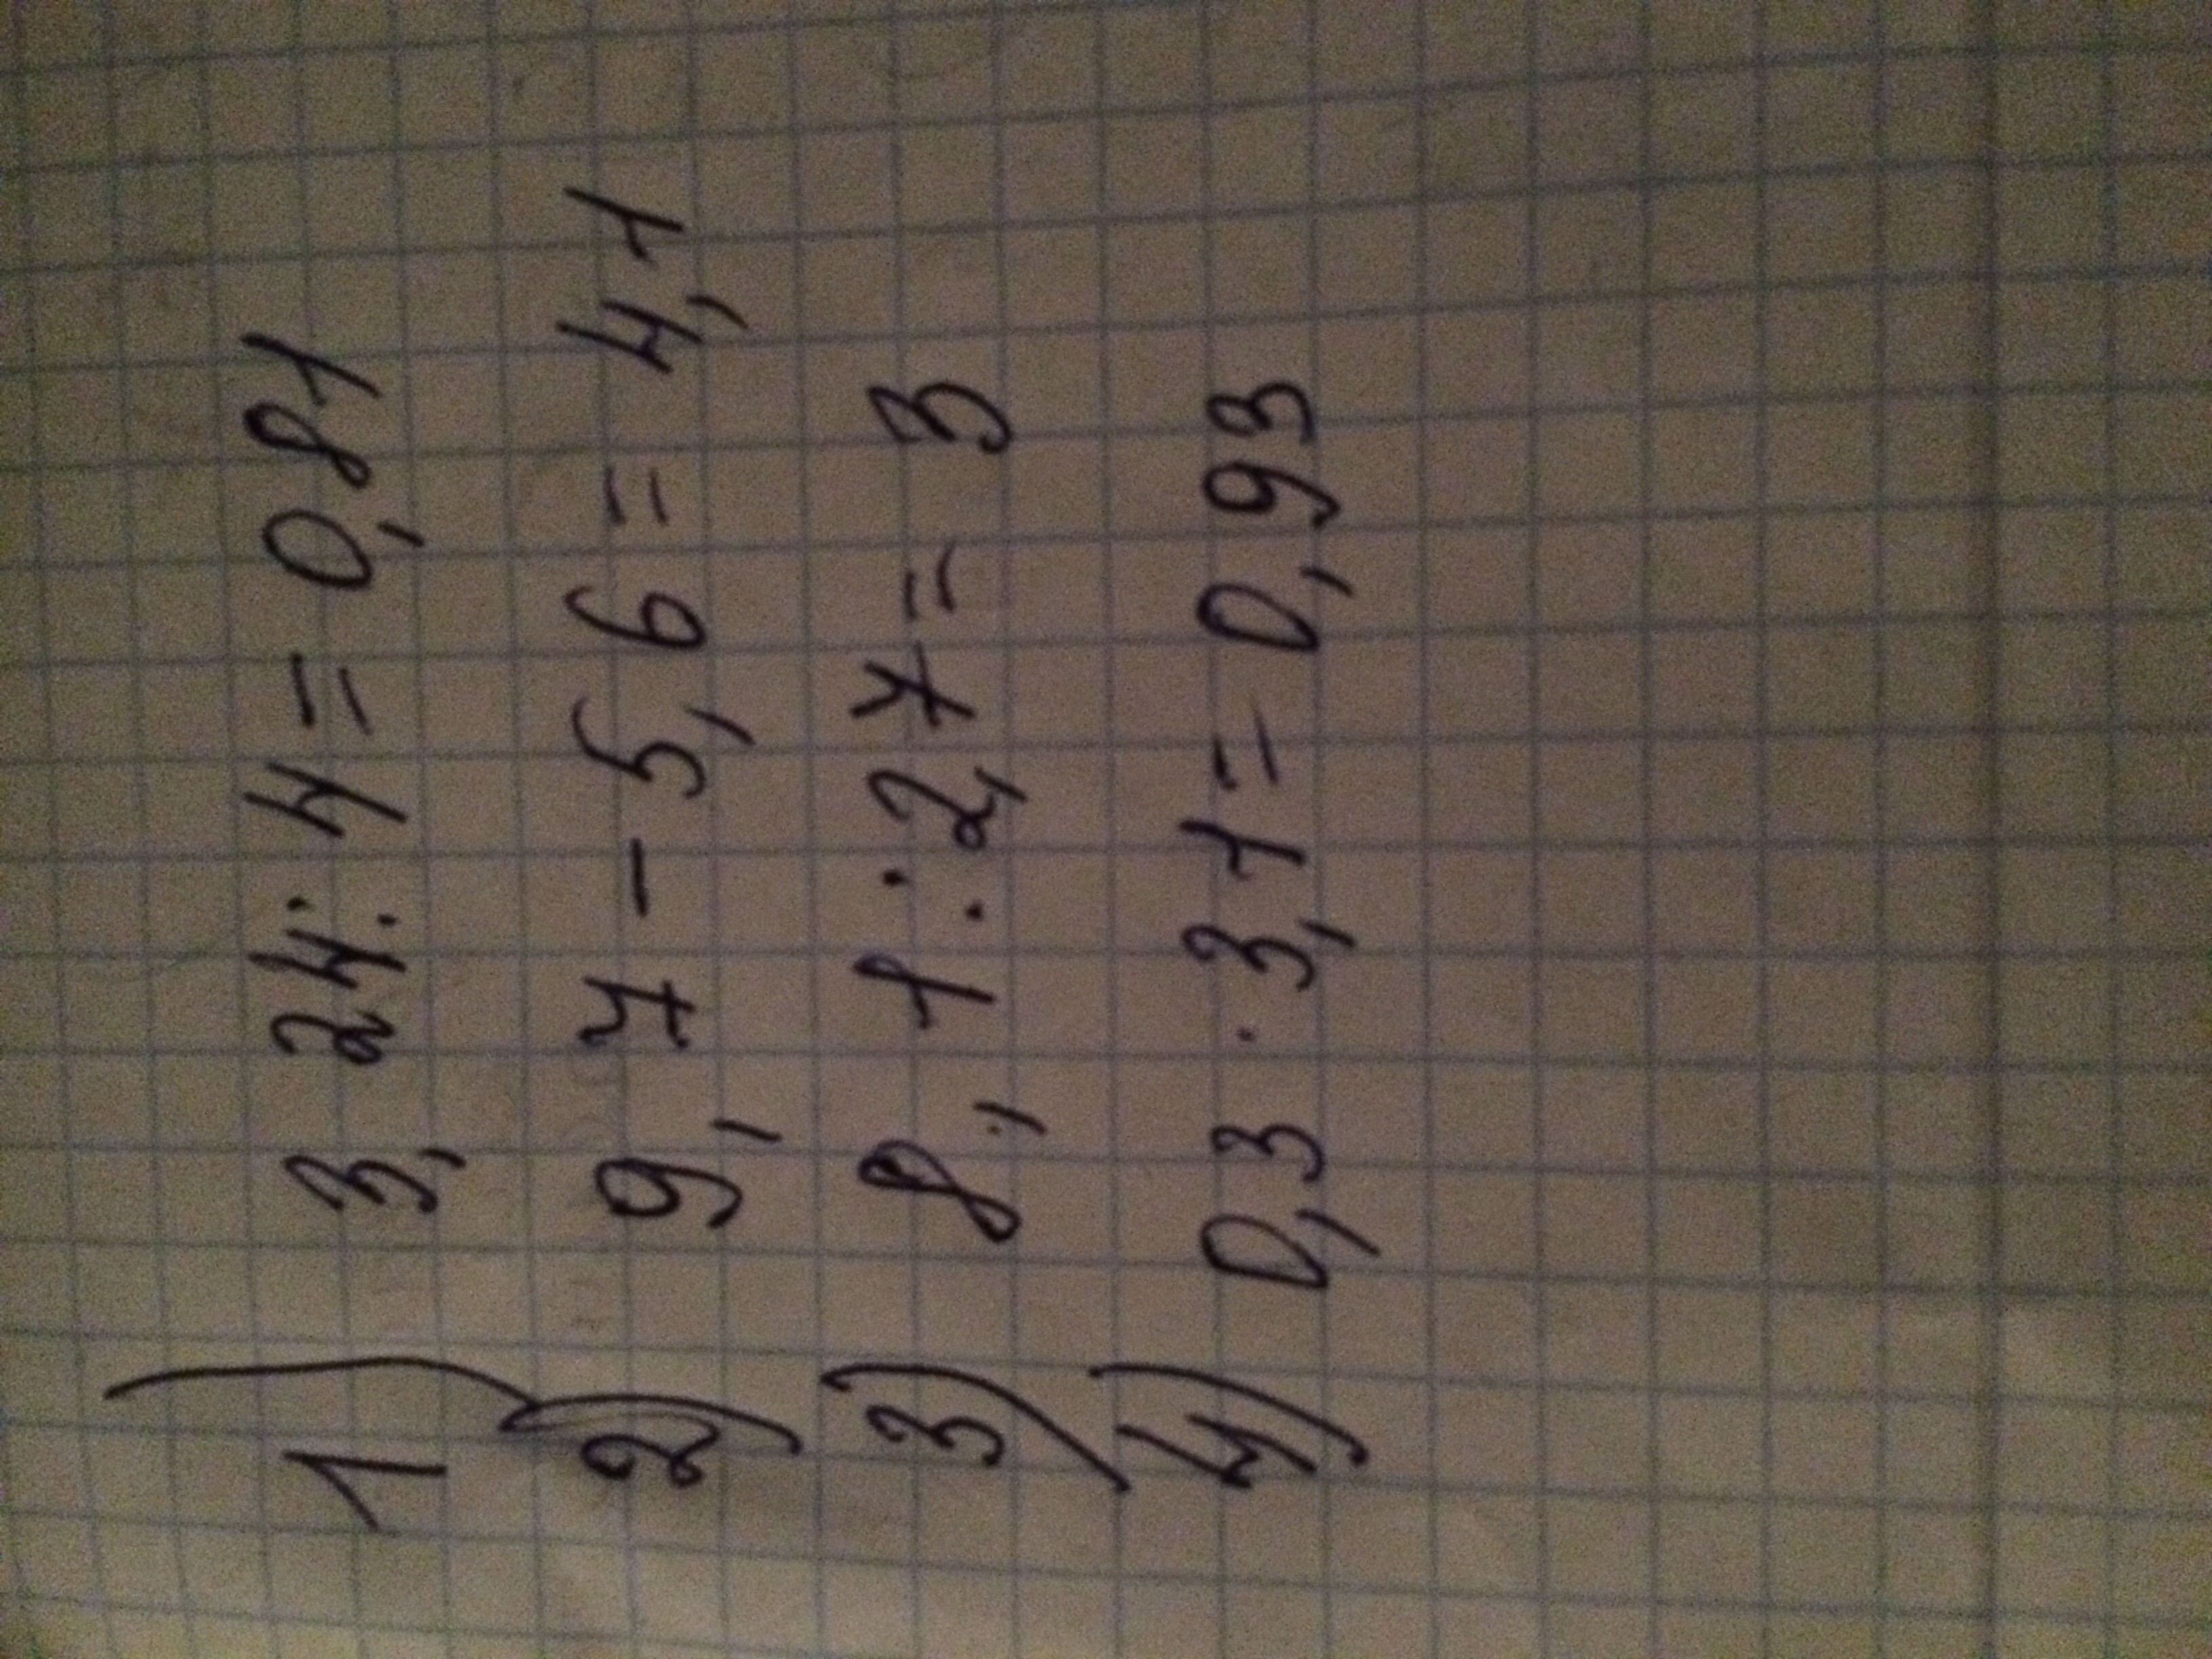 1) 3,24:4=0,81
2) 9,7-5,6=4,1
3) 8,1:2,7=3
4) 0,3·3,1=0,93